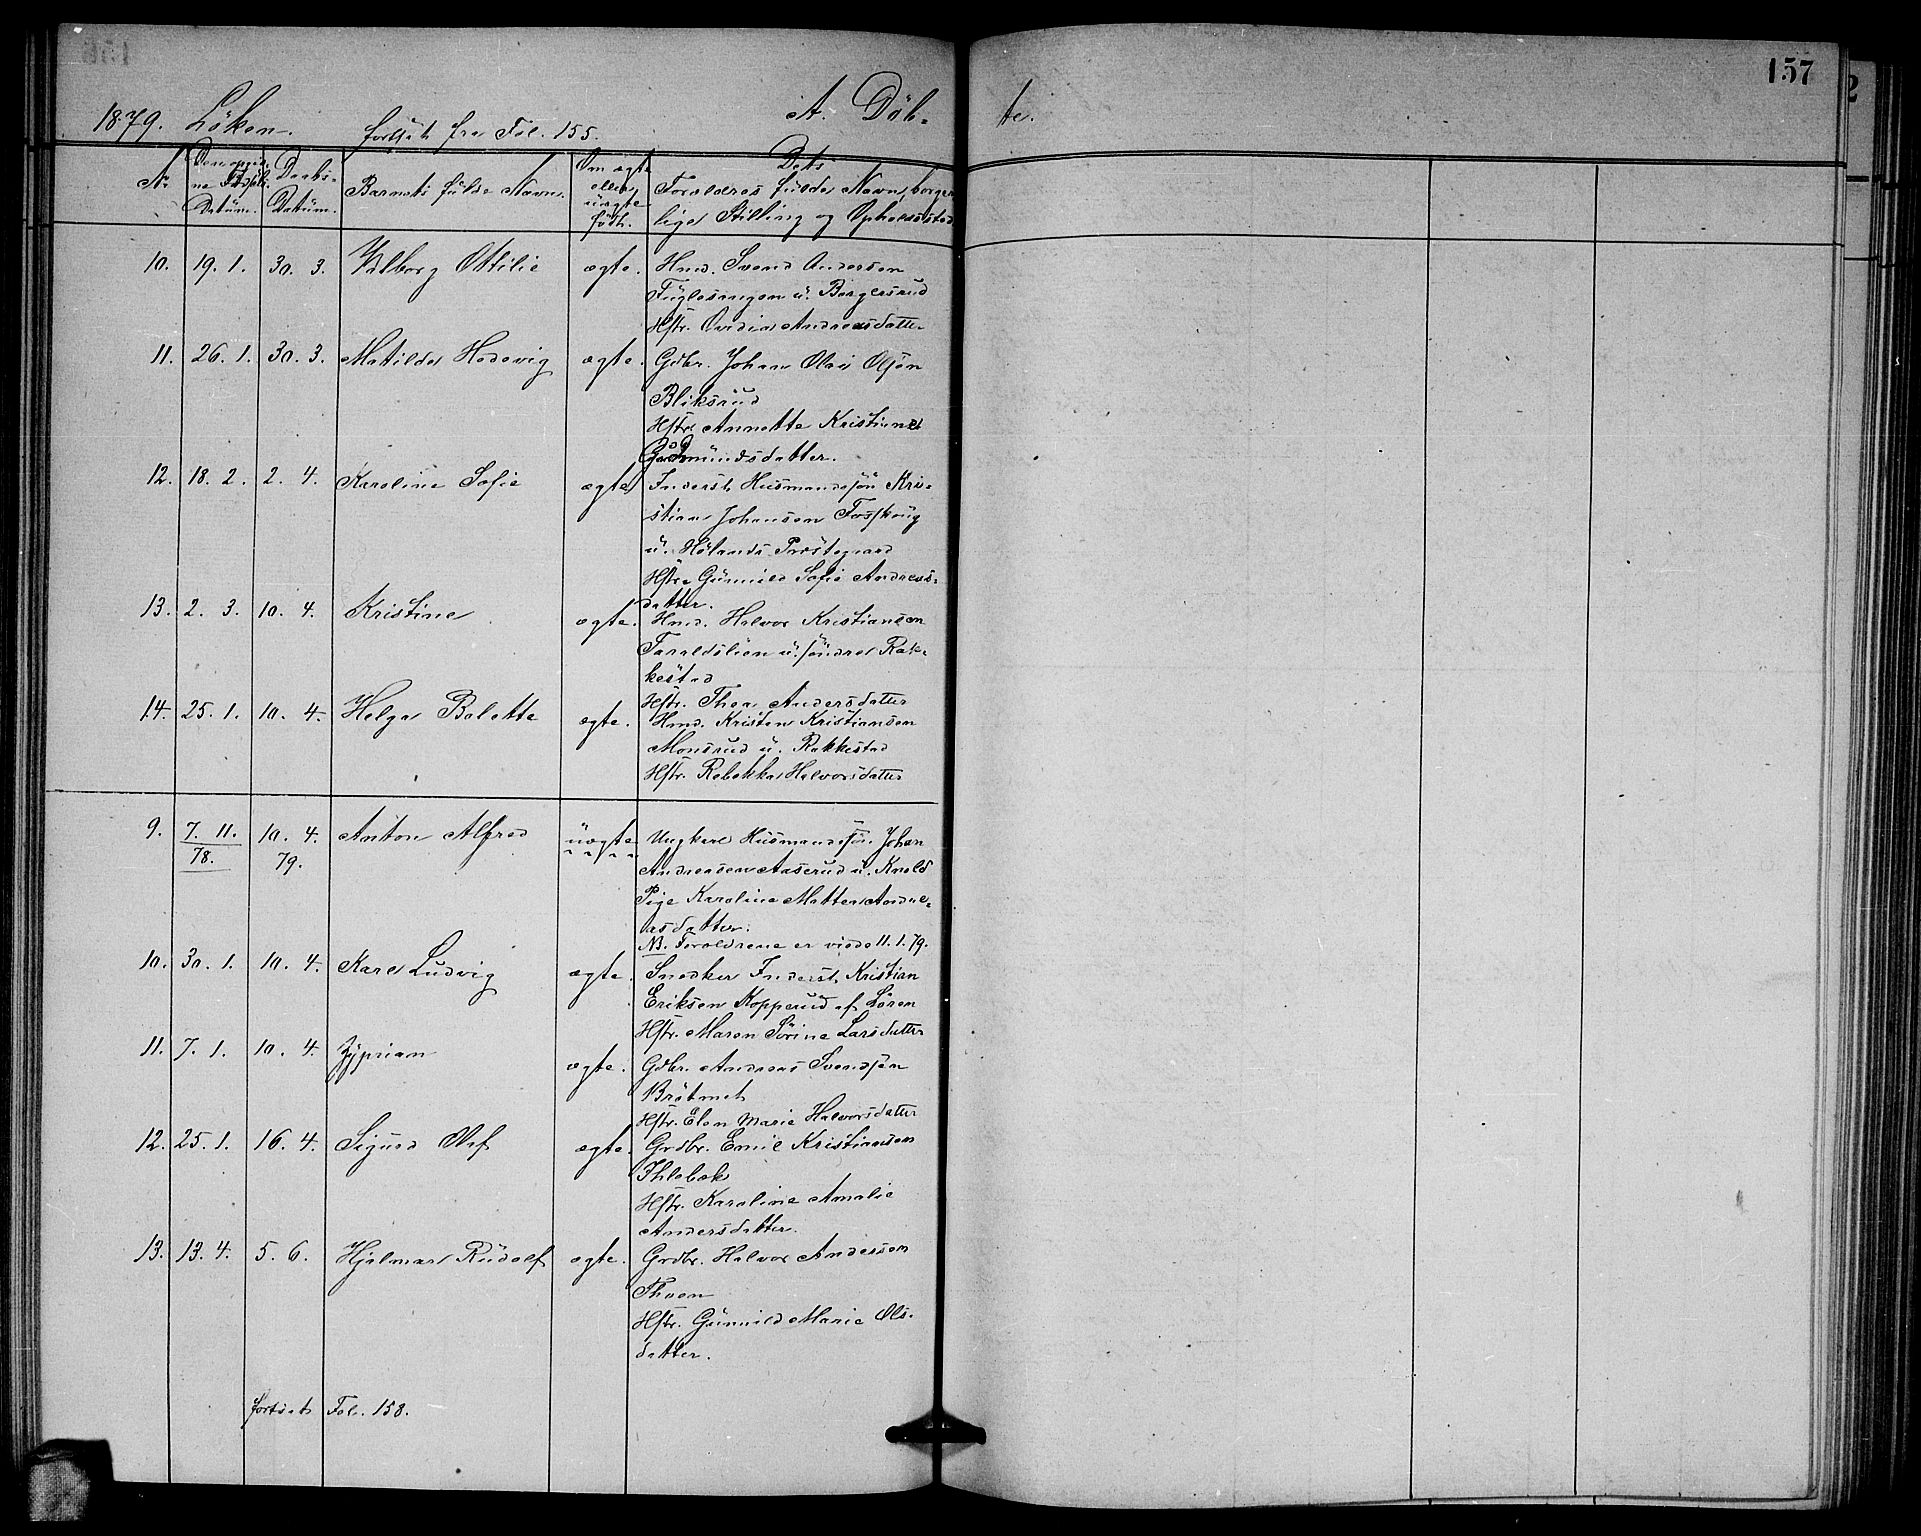 157
1879. Löken. fortsat fra Fol. 155. A. Döb- te.
No
Datum.
Daabs-
Datum.
Barnets fulde Navn.
Om ægte
eller
uægte
födt.
Dets
Forældres fulde Navn, borger-
lige Stilling og Opholdssted
10. 19. 1. 30. 3. Valborg Ottilie ægte. Hmd. Svend Andersen
Fuglesangen u. Borgersrud
Hstr. Ovidia Andreasdatter
11. 26. 1. 30. 3. Matilde Hedevig ægte. Gdbr. Johan Olai Olsøn
Bliksrud
Hstr. Annette Kristine
Gudmundsdatter.
12. 18. 2. 2. 4. Karoline Sofie ægte Inderst, Husmandssøn Kri-
stian Johansen Fosskoug
u. Hølands Præstegaard
Hstr. Gunnild Sofie Andreas-
datter.
13. 2. 3. 10. 4. Kristine ægte. Hmd. Halvor Kristiansen
Taraldslien u. søndre Rak-
kestad
Hstr. Thea Andersdatter
14. 25. 1. 10. 4. Helga Bolette ægte. Hmd. Kristen Kristiansen
Monsrud u. Rakkestad
Hstr. Rebekka Halvorsdatter
9. 7. 11. 10. 4. Anton Alfred uægte Ungkarl Husmandssøn Johan
78. 79.
Andreasen Aaserud u. Knold
Pige Karoline Mathea Andre-
asdatter.
NB. Forældrene er viede 11. 1. 79.
10. 30. 1. 10. 4. Karl Ludvig ægte. Snedker Inderst, Kristian
Eriksen Kopperud af Lören
Hstr. Maren Sörine Larsdatter
11. 7. 1. 10. 4. Zyprian ægte. Gdbr. Andreas Svendsøn
Bråtmet
Hstr. Elen Marie Halvorsdatter
12. 25. 1. 16. 4. Sigurd Olaf ægte. Grdbr. Emil Kristiansen
Ihlebæk
Hstr. Karoline Amalie
Andersdatter.
13. 13. 4. 5. 6. Hjalmar Rudolf ægte. Grdbr. Halvor Andersen
Thoen
Hstr. Gunnild Marie Ols-
datter.
fortsat Fol. 158.